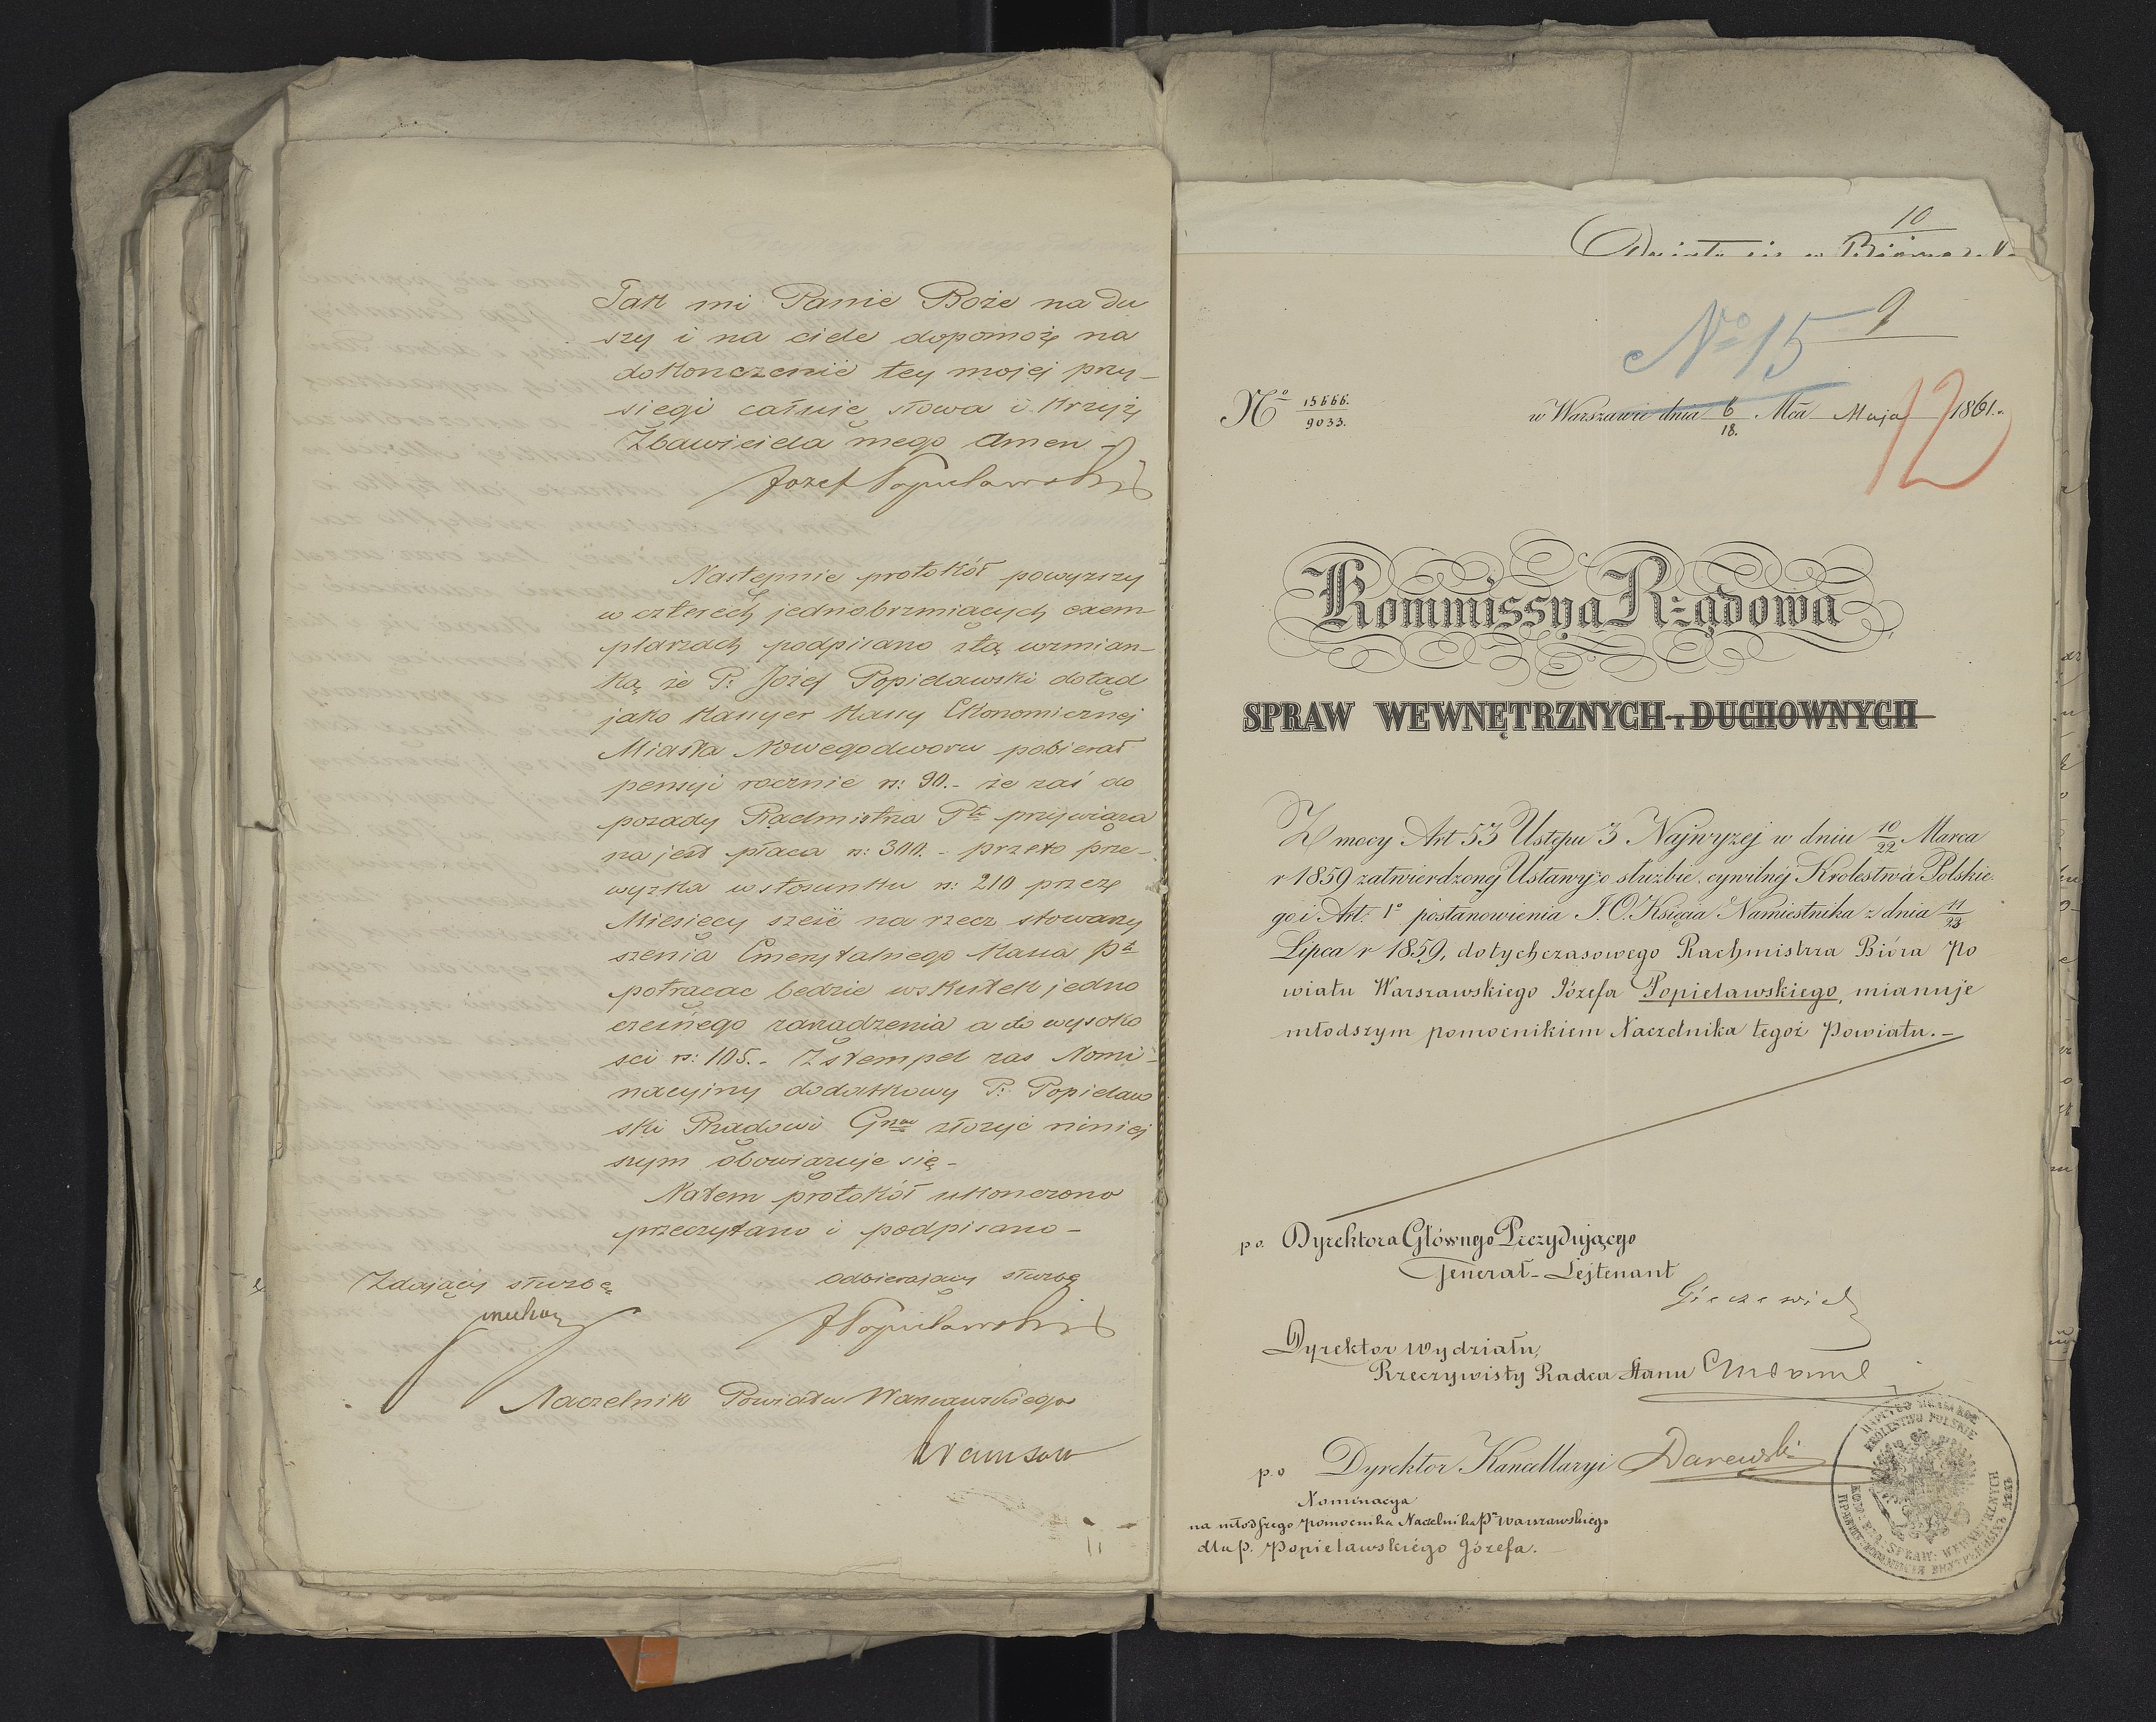 Tak mi Panie Boże na du
szy i na ciele dopomoż na
dokonczenie tey mojej przy-
siegi całuie słowa i krzyż
Zbawiciela mego Amen -
Jozef Popielawski
Nastepnie protokół powyzszy
w czterech jednobrzmiacych exem
plarzach podpisano z tą wzmian-
ką ze P: Józef Popielawski dotąd
jako Kassyer Kassy Ekonomicznej
Miasta Nowegodworu pobierał
pensyi rocznie rs: 90.- ze zaś do
posady Rachmistrza Ptu przywiaza
na jest płaca rs: 300. - przeto prze-
wyzka w stosunku rs: 210 przez
Miesiecy sześć na rzecz stowarzy
szenia Emerytalnego Kassa Ptu
potracac bedzie wskutek jedno
czesnego zarzadzenia a do wysoko
sci rs: 105.- Zstempel zas Nomi-
nacyiny dodatkowy P: Popielaw
ski Rządowi złozyć niniej
szym obowiazuje się -
Natem protokół ukonczono
przeczytano i podpisano -
Zdający słuzbę
odbierajacy słuzbę
JPopielawski
Naczelnik Powiatu Warszawskiego
10
9
No 15
12
No 15666.
9033.
w Warszawie dnia 6/18. Mca Maja 1861.
Kommissya Rządowa
SPRAW WEWNĘTRZNYCH I DUCHOWNYCH
Z mocy Art 53 Ustępu 3 Najwyzej w dniu 10/22 Marca
r 1859 zatwierdzonej Ustawy o służbie cywilnej Krolestwa Polskie
go i Art: 1o postanowienia J. O. Księcia Namiestnika z dnia 11/23
Lipca r 1859, dotychczasowego Rachmistrza Bióra Po
wiatu Warszawskiego Józefa Popielawskiego, mianuje
młodszym pomocnikiem Naczelnika tegoż Powiatu. -
p o. Dyrektora Głównego Prezydującego
Jenerał-Lejtenant
Gieczewicz
Dyrektor Wydziału,
Rzeczywisty Radca Stanu
p. o Dyrektor Kancellaryi Darewski
Nominacya
na młodszego pomocnika Naczelnika Ptu Warszawskiego
dla P. Popielawskiego Józefa.
KROLESTWO POLSKIE
KOM: RZ: SPRAW: WEWNĘTRZNYCH